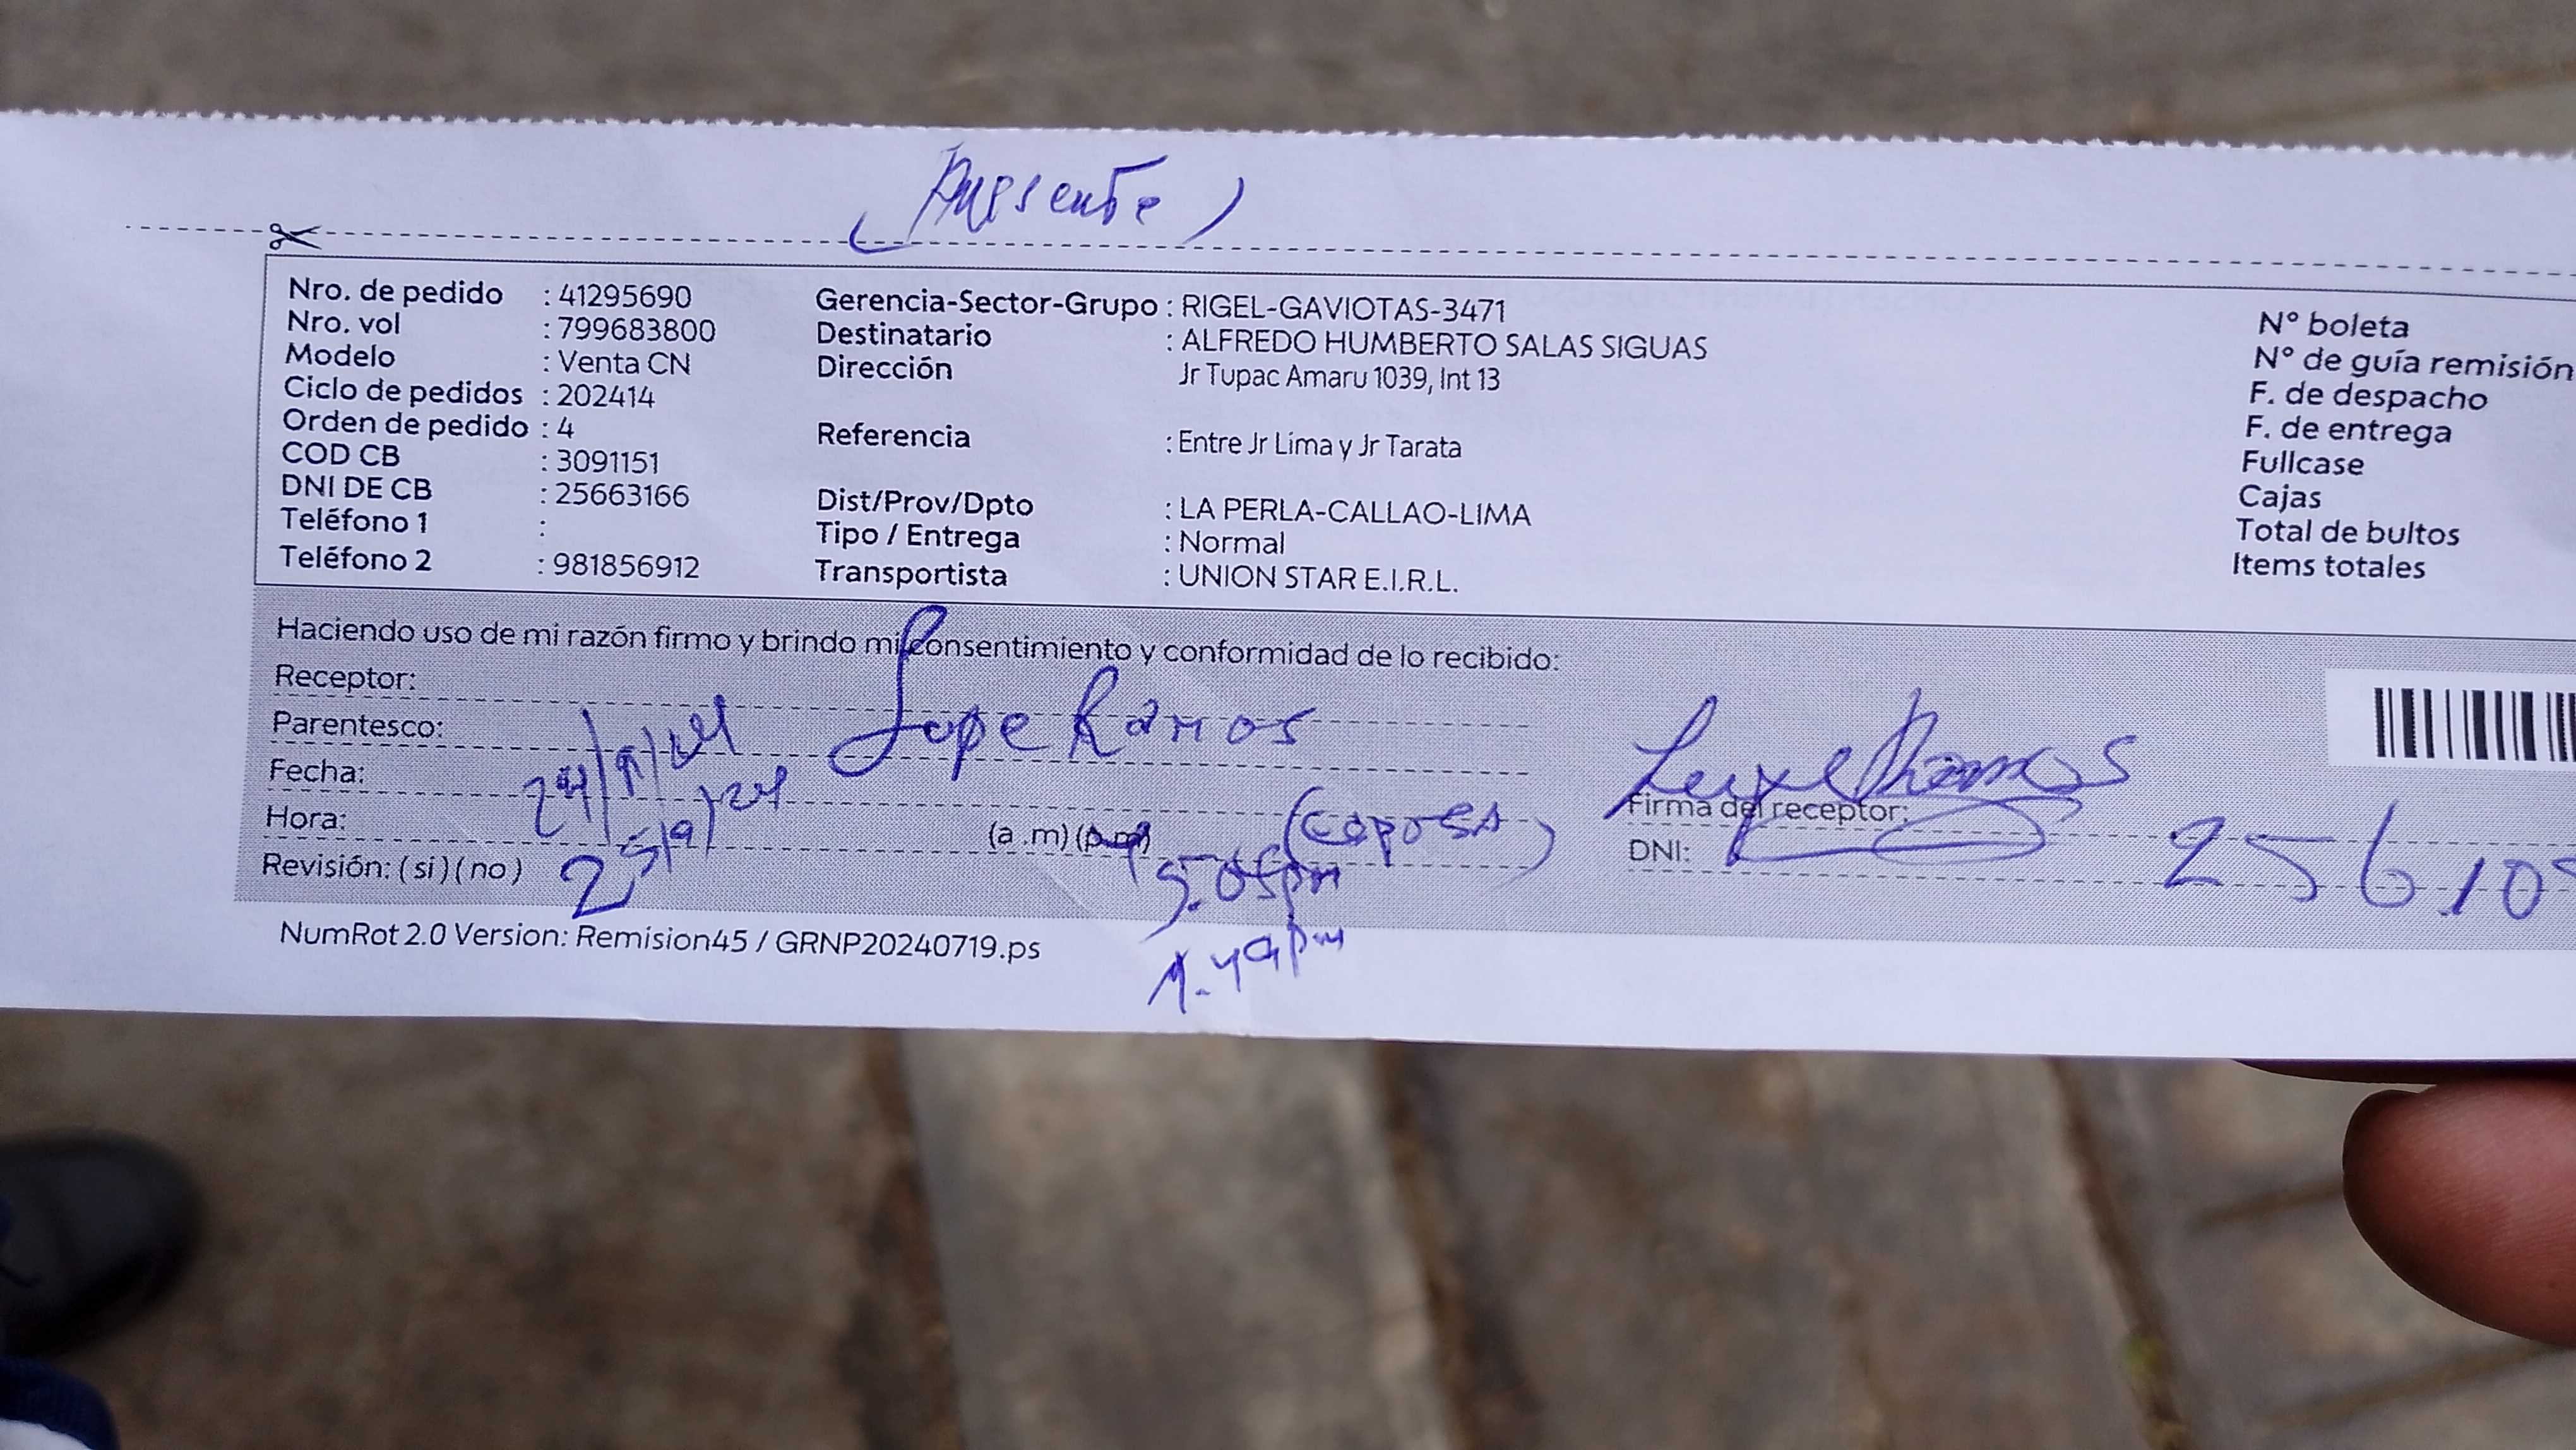 (Aussente)
Nro. de pedido : 41295690
Nro. vol : 799683800
Modelo : Venta CN
Ciclo de pedidos : 202414
Orden de pedido : 4
COD CB : 3091151
DNI DE CB : 25663166
Teléfono 1 :
Teléfono 2 : 981856912
Gerencia-Sector-Grupo : RIGEL-GAVIOTAS-3471
Destinatario : ALFREDO HUMBERTO SALAS SIGUAS
Dirección Jr Tupac Amaru 1039, Int 13
Referencia : Entre Jr Lima y Jr Tarata
Dist/Prov/Dpto : LA PERLA-CALLAO-LIMA
Tipo / Entrega : Normal
Transportista : UNION STAR E.I.R.L.
N° boleta
N° de guía remisión
F. de despacho
F. de entrega
Fullcase
Cajas
Total de bultos
Items totales
Haciendo uso de mi razón firmo y brindo mi consentimiento y conformidad de lo recibido:
Receptor:
Parentesco: Lupe Ramos
Fecha: 24/9/24
Hora: 25/9/24 (a .m) (p.m) (esposa)
Revisión: ( si ) ( no ) 5.05pm
1.49pm
Lupe Ramos
Firma del receptor:
DNI: 25610
NumRot 2.0 Version: Remision45 / GRNP20240719.ps